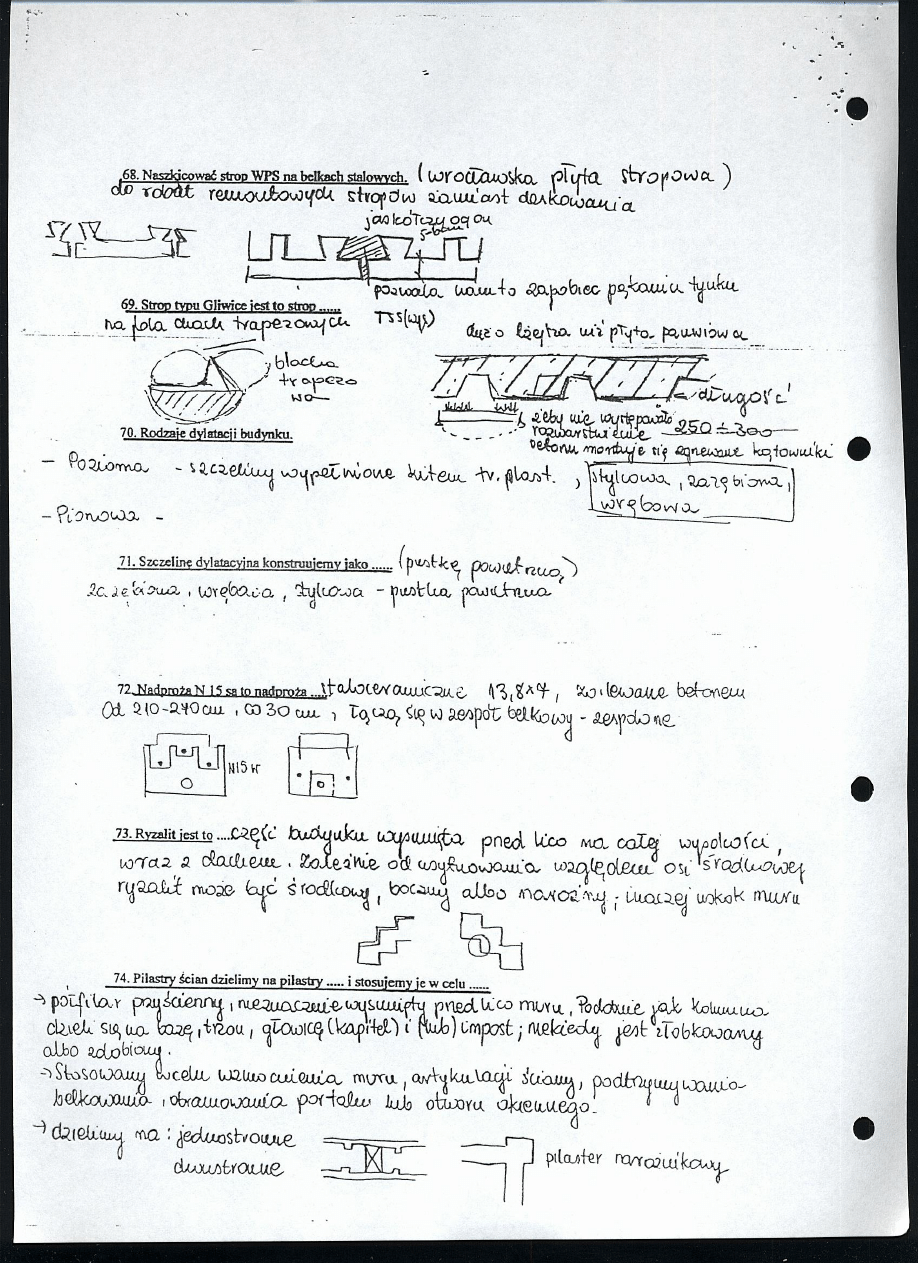 68. Naszkicować strop WPS na belkach stalowych. (wrocławska płyta stropowa)
do robót remontowych stropów zamiast deskowania
jaskółczy ogon
pozwala nam to zapobiec pękaniu tynku
69. Strop typu Gliwice jest to strop ......
na fałdach trapezowych TSS(wys)
dużo lżejsza niż płyta panwiowa
blacha
trapezo
wa
długość
żeby nie występowało
rozwarstwienie 250 ÷ 300
betonu montuje się zgrzewane kątowniki
70. Rodzaje dylatacji budynku.
- Pozioma - szczeliny wypełnione kitem tr. plast. , stykowa, zazębiona,
wrębowa
- Pionowa -
71. Szczelinę dylatacyjna konstruujemy jako ...... (pustkę powietrzną)
zazębiona, wrębowa, stykowa - pustka powietrzna
72. Nadproża N 15 sa to nadproża .... staloceramiczne 13,8×7, zalewane betonem
Od 210-270 cm, co 30 cm, łączą się w zespół belkowy - zespolone
N15
73. Ryzalit jest to .... część budynku wysunięta przed lico na całej wysokości,
wraz z dachem. Zależnie od usytuowania względem osi środkowej
ryzalit może być środkowy, boczny albo narożny; inaczej uskok muru
74. Pilastry ścian dzielimy na pilastry ..... i stosujemy je w celu ......
→ półfilar przyścienny, nieznacznie wysunięty przed lico muru. Podobnie jak kolumna
dzieli się na bazę, trzon, głowicę (kapitel) i (lub) impost; niekiedy jest żłobkowany
albo zdobiony.
→ Stosowany w celu wzmocnienia muru, artykulacji ściany, podtrzymywania
belkowania, obramowania portalu lub otworu okiennego.
→ dzielimy na: jednostronne
dwustronne
pilaster narożnikowy